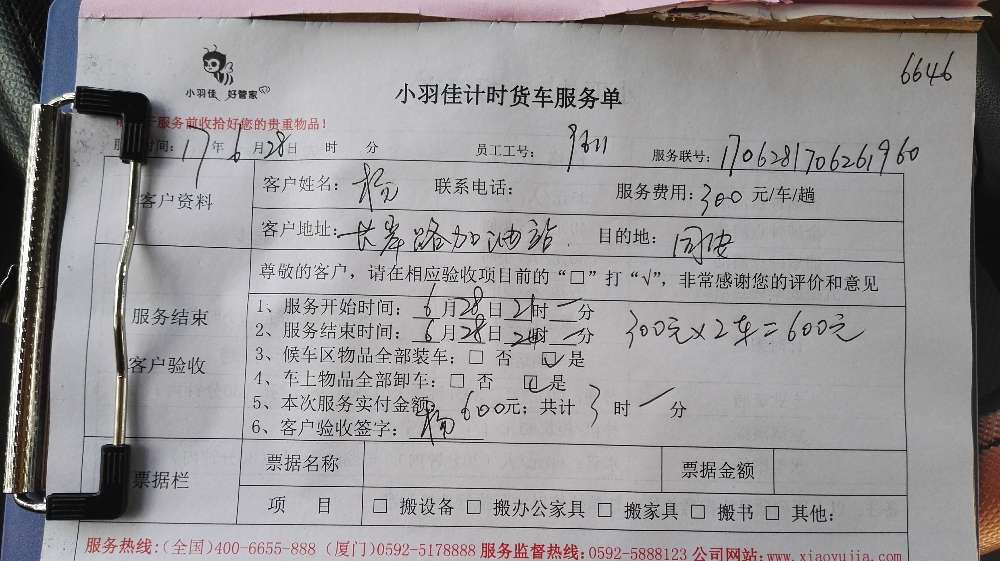 6646
小羽佳 好管家
小羽佳计时货车服务单
服务前收拾好您的贵重物品！
时间：17年6月28日 时 分 员工工号： 服务联号：1706281706261960
客户资料
客户姓名：杨 联系电话： 服务费用：300元/车/趟
客户地址：长岸路加油站 目的地：同安
服务结束
客户验收
尊敬的客户，请在相应验收项目前的“□”打“√”，非常感谢您的评价和意见
1、服务开始时间：6月28日21时一分
2、服务结束时间：6月28日24时一分
300元×2车=600元
3、候车区物品全部装车：□ 否 ☑是
4、车上物品全部卸车：□ 否 ☑是
5、本次服务实付金额：600元；共计 3 时 一 分
6、客户验收签字：杨
票据栏
票据名称 票据金额
项 目 □ 搬设备 □ 搬办公家具 □ 搬家具 □ 搬书 □ 其他：
服务热线：(全国)400-6655-888 (厦门)0592-5178888 服务监督热线：0592-5888123 公司网站：www.xiaoyujia.com